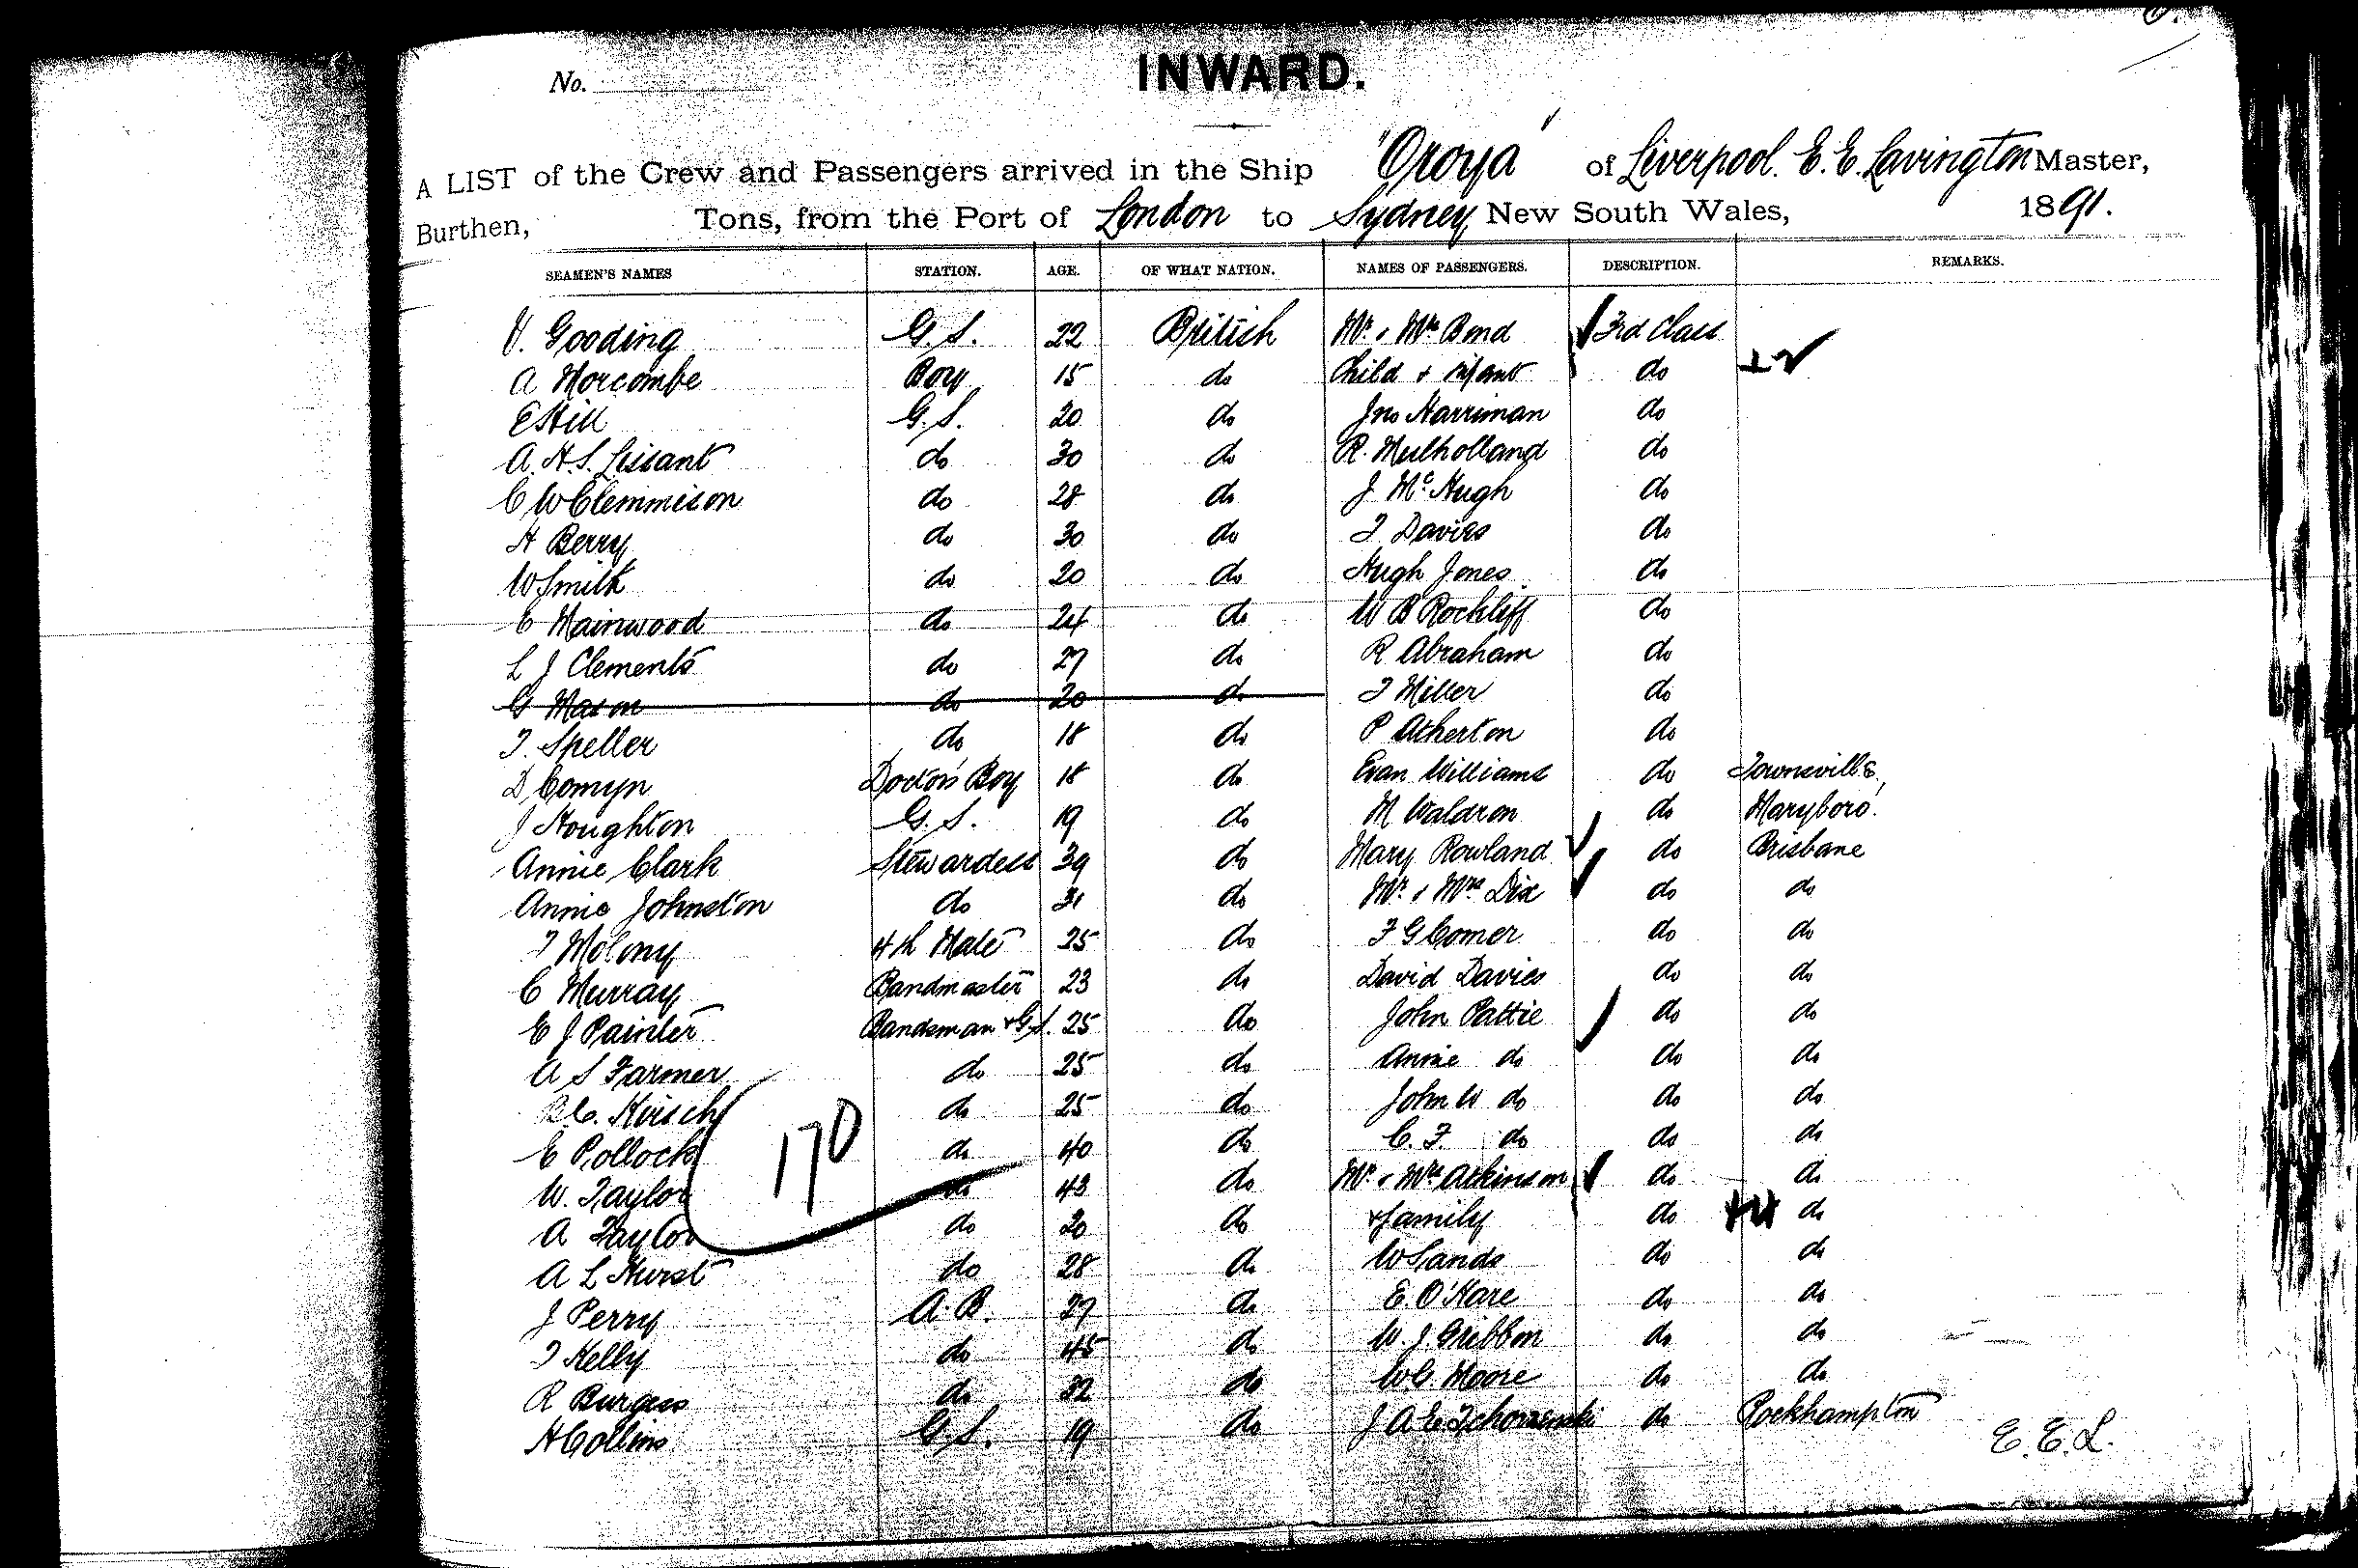 No.
INWARD.
A LIST of the Crew and Passengers arrived in the Ship "Oroya" of Liverpool. E. E. Lavington Master,
Burthen, Tons, from the Port of London to Sydney, New South Wales, 1891.
SEAMEN'S NAMES STATION. AGE. OF WHAT NATION. NAMES OF PASSENGERS. DESCRIPTION. REMARKS.
V. Gooding G. S. 22 British Mr. & Mrs Bond 3rd Class
A Horcombe Boy 15 do Child & infant do + 2
E Hill G. S. 20 do Jno Harriman do
A. H. S. Lissant do 30 do R. Mulholland do
C W Clemmison do 28 do J McHugh do
H Berry do 30 do T Davies do
W Smith do 20 do Hugh Jones do
C Mainwood do 24 do W B Rockliff do
L J Clements do 27 do R Abraham do
G Mason do 20 do T Miller do
T. Speller do 18 do P Atherton do
D. Comyn Doctor's Boy 18 do Evan Williams do Townsville
J Houghton G. S. 19 do M Waldron do Maryboro'
Annie Clark Stewardess 39 do Mary Rowland do Brisbane
Annie Johnston do 31 do Mr. & Mrs Dix do do
T Molony 4th Mate 25 do F G Comer do do
C Murray Bandmaster 23 do David Davies do do
E J Painter Bandsman & G.S. 25 do John Pattie do do
A S Farmer do 25 do Annie do do do
C. Hirsch do 25 do John W do do do
E Pollock do 40 do C. F. do do do
170
W. Taylor do 43 do Mr. & Mrs Atkinson do do
A Taylor do 20 do & family do do
A L Hurst do 28 do W Sands do do
J Perry A. B. 27 do E. O'Hare do do
T Kelly do 45 do W. J. Gribbon do do
R Burgess do 32 do W. C. Moore do do
H Collins G S. 19 do J A E do Rockhampton
E. E. L.